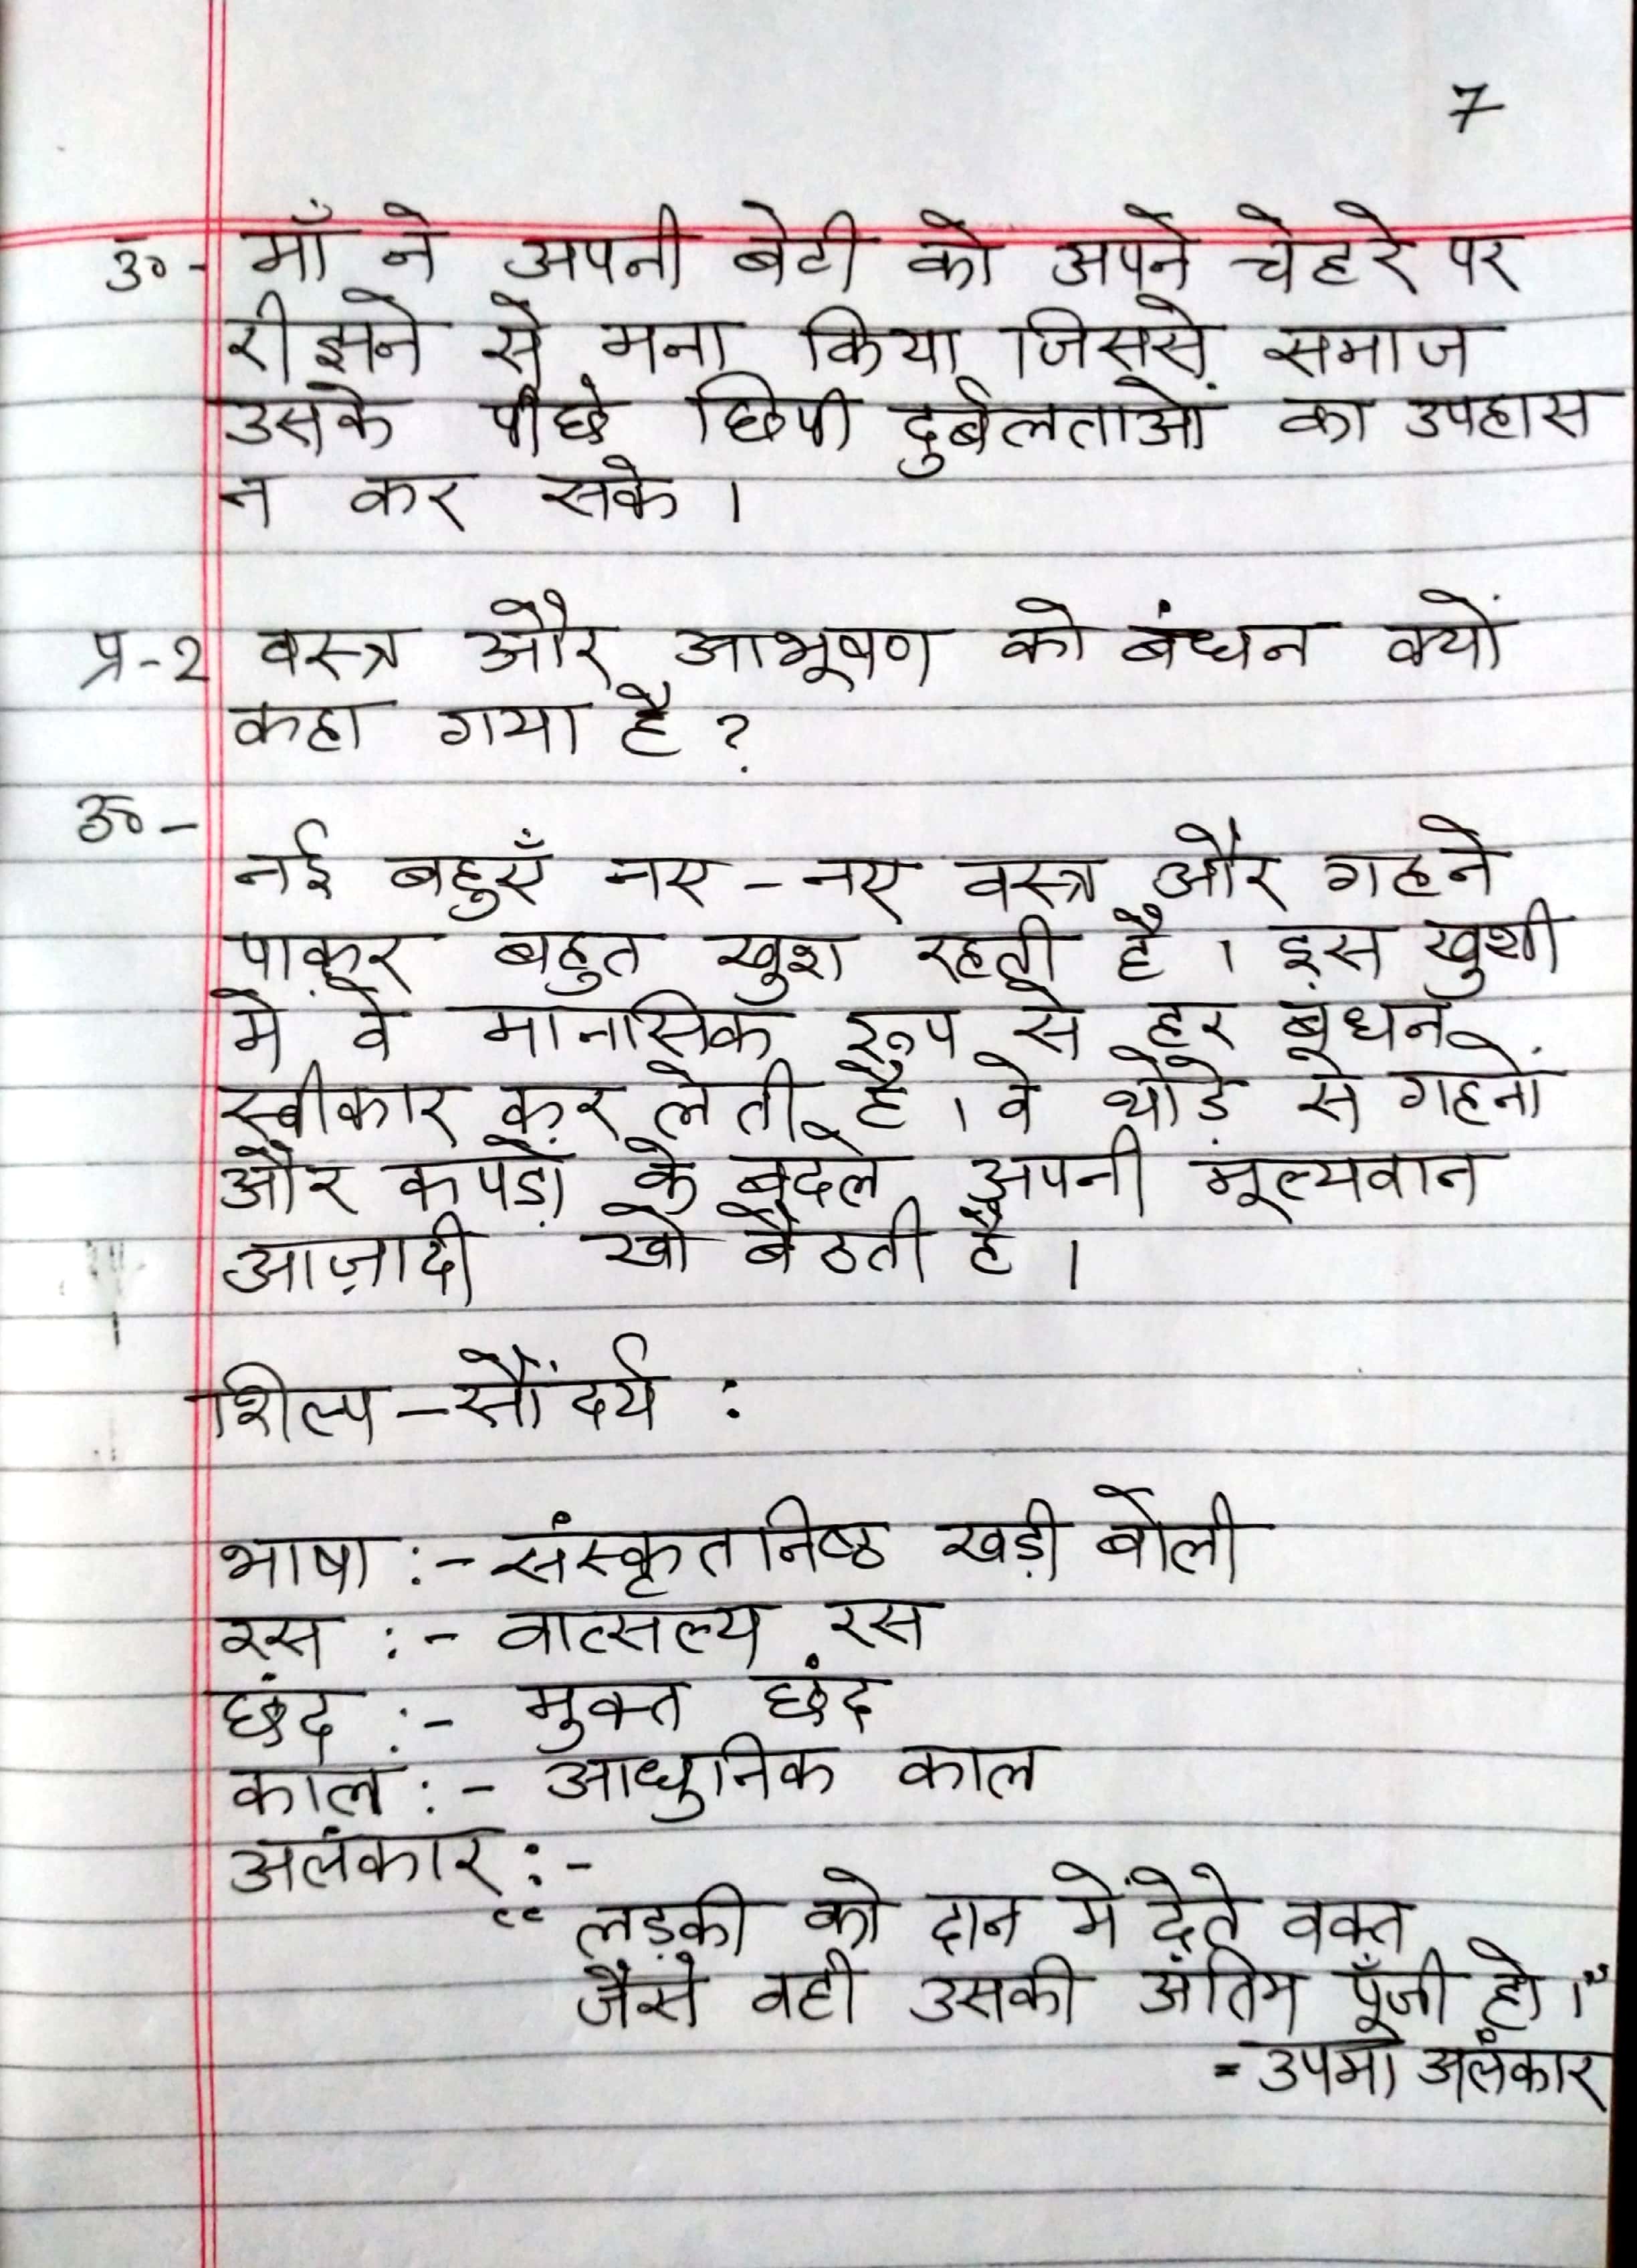 7
उ०- माँ ने अपनी बेटी को अपने चेहरे पर
रीझने से मना किया जिससे समाज
उसके पीछे छिपी दुर्बलताओं का उपहास
न कर सके ।
प्र-2 वस्त्र और आभूषण को बंधन क्यों
कहा गया है ?
उ०-
नई बहुएँ नए-नए वस्त्र और गहने
पाकर बहुत खुश रहती है । इस खुशी
में वे मानसिक रूप से हर बंधन
स्वीकार कर लेती है । वे थोड़े से गहनों
और कपड़ो के बदले अपनी मूल्यवान
आज़ादी खो बैठती है ।
शिल्प-सौंदर्य :
भाषा :- संस्कृतनिष्ठ खड़ी बोली
रस :- वात्सल्य रस
छंद :- मुक्त छंद
काल :- आधुनिक काल
अलंकार :-
“ लड़की को दान में देते वक्त
जैसे वही उसकी अंतिम पूँजी हो ।”
= उपमा अलंकार